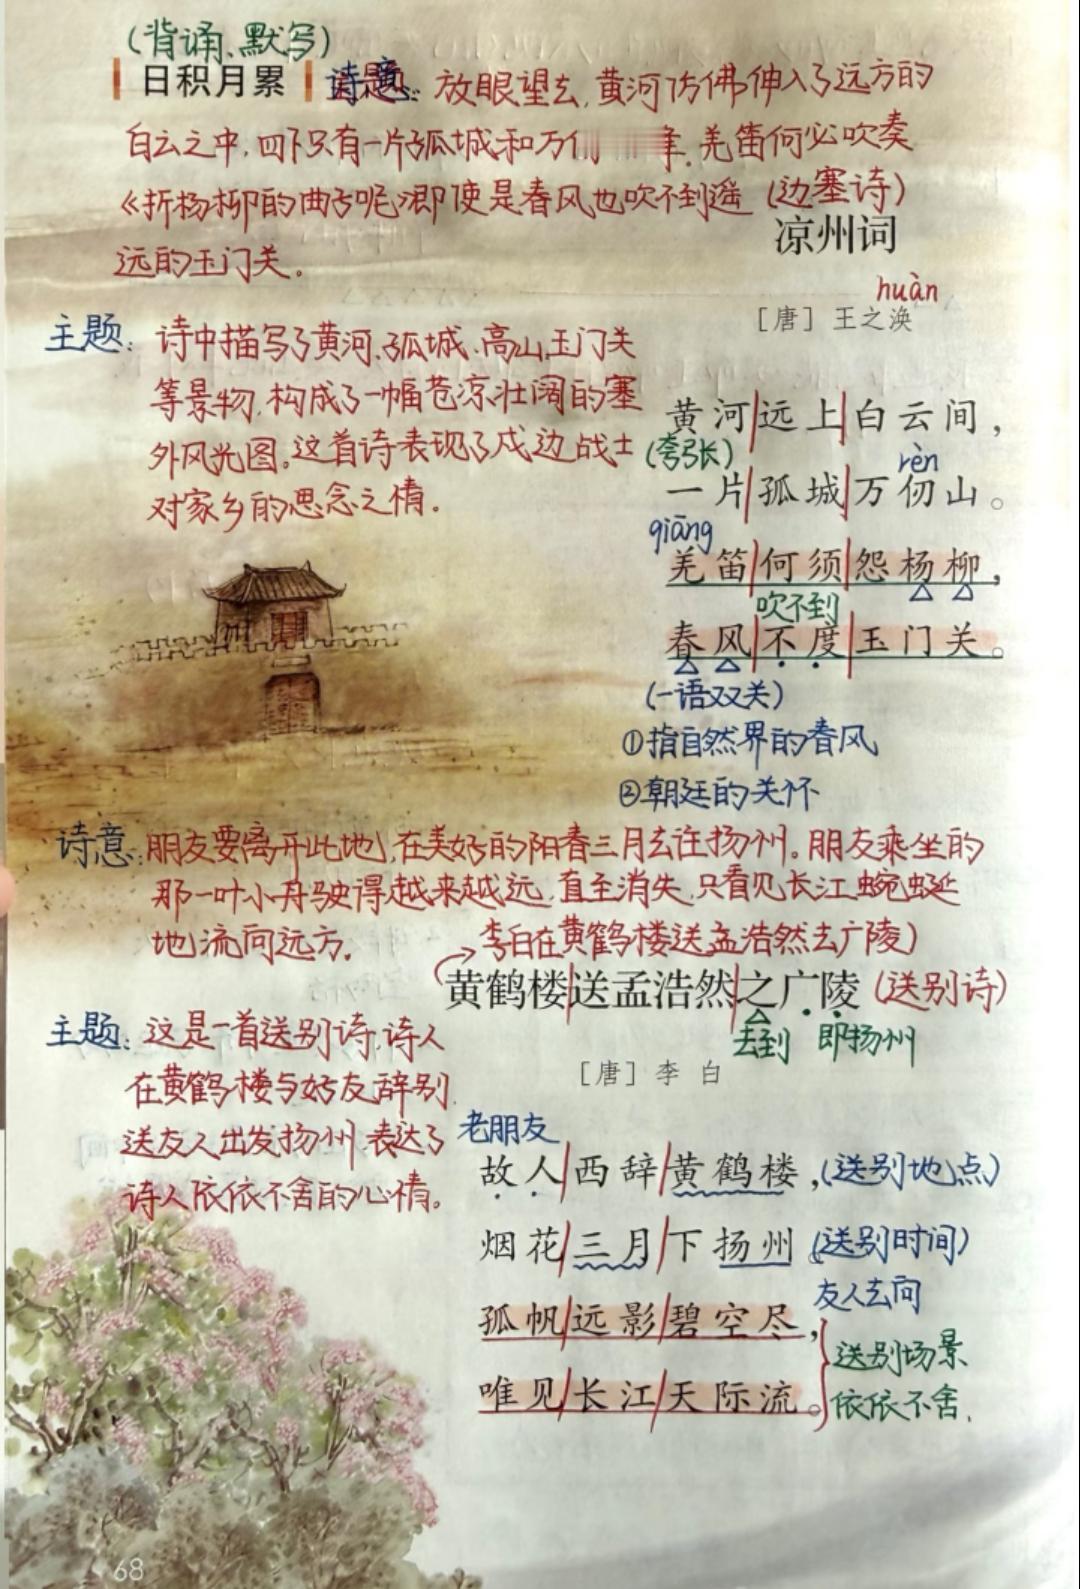 (背诵、默写)
日积月累
诗意: 放眼望去,黄河仿佛伸入了远方的
白云之中,四下只有一片孤城和万仞 羌笛何必吹奏
《折杨柳的曲子呢?即使是春风也吹不到遥
远的玉门关。
(边塞诗)
凉州词
huàn
[唐] 王之涣
主题: 诗中描写了黄河、孤城、高山、玉门关
等景物,构成了一幅苍凉壮阔的塞
外风光图。这首诗表现了戍边战士
对家乡的思念之情。
黄河远上白云间,
(夸张) rèn
一片孤城万仞山。
qiāng
羌笛何须怨杨柳,
吹不到
春风不度玉门关。
(一语双关)
①指自然界的春风
②朝廷的关怀
诗意: 朋友要离开此地,在美好的阳春三月去往扬州。朋友乘坐的
那一叶小舟驶得越来越远,直至消失,只看见长江蜿蜒
地流向远方.
李白在黄鹤楼送孟浩然去广陵)
黄鹤楼送孟浩然之广陵 (送别诗)
去到 即扬州
[唐] 李 白
主题: 这是一首送别诗,诗人
在黄鹤楼与好友辞别.
送友人出发扬州,表达了
诗人依依不舍的心情。
老朋友
故人西辞黄鹤楼,(送别地点)
烟花三月下扬州。(送别时间)
友人去向
孤帆远影碧空尽,
送别场景
唯见长江天际流。
依依不舍.
68